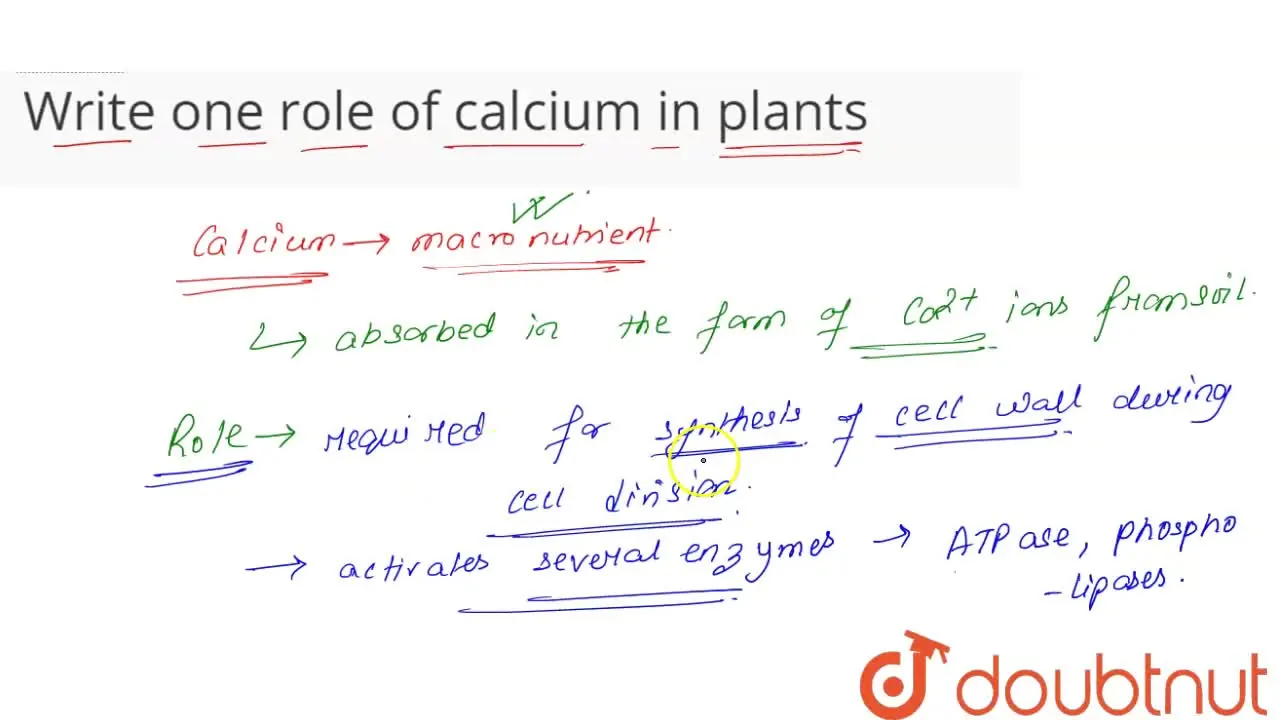 Write one role of calcium in plants
Calcium → macronutrient.
↳ absorbed in the form of Ca2+ ions from soil.
Role → required for synthesis of cell wall during
cell division.
→ activates several enzymes → ATPase, phospho
-lipases.
doubtnut